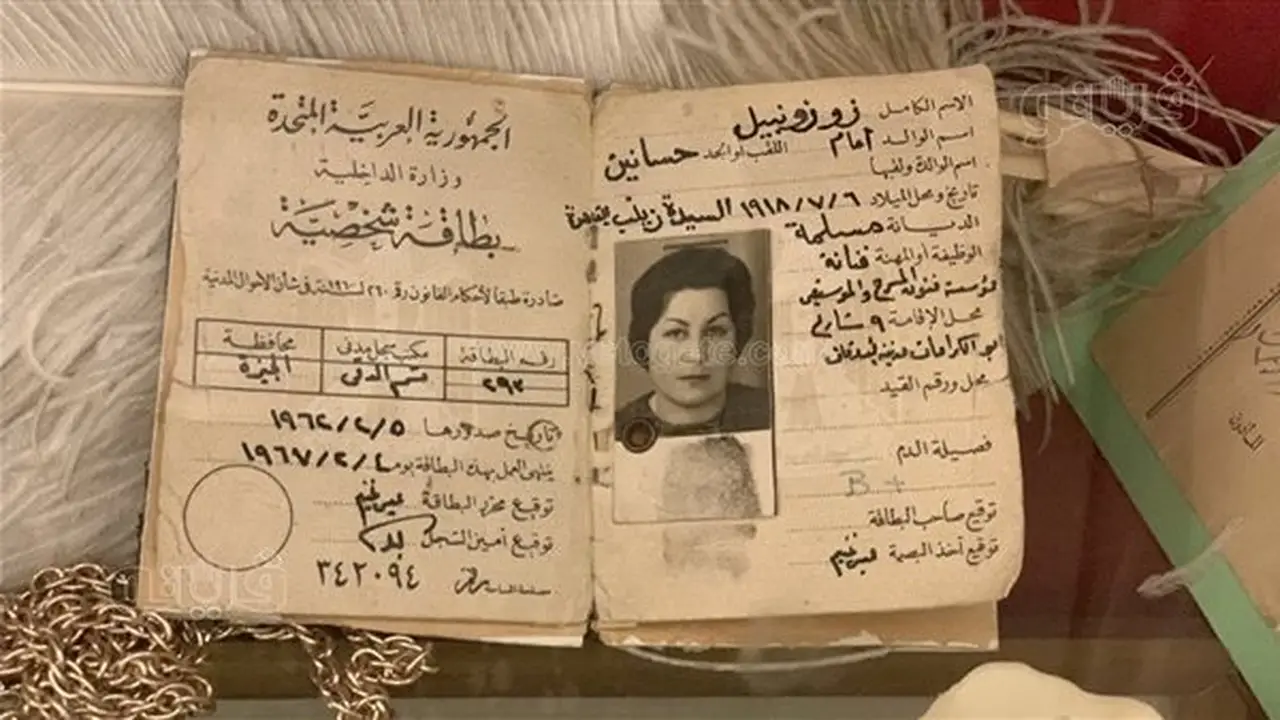 الاسم الكامل زوزو نبيل
اسم الوالد امام اللقب او الجد حسانين
اسم الوالدة ولقبها
تاريخ ومحل الميلاد ١٩١٨/٧/٦ السيدة زينب بالقاهرة
الديانة مسلمة
الوظيفة أو المهنة فنانة
مؤسسة فنون المسرح والموسيقى
محل الإقامة ٩ شارع
محل ورقم القيد
فصيلة الدم
B +
توقيع صاحب البطاقة
توقيع آخذ البصمة
الجمهورية العربية المتحدة
وزارة الداخلية
بطاقة شخصية
صادرة طبقا لأحكام القانون رقم ٢٦٠ لسنة ١٩٦٠ في شأن الأحوال المدنية
رقم البطاقة مكتب سجل مدنى محافظة
٢٩٣ قسم الدقى الجيزة
تاريخ صدورها ١٩٦٢/٢/٥
ينتهى العمل بهذه البطاقة يوم ١٩٦٧/٢/٤
توقيع محرر البطاقة
توقيع أمين السجل
٣٤٢٠٩٤